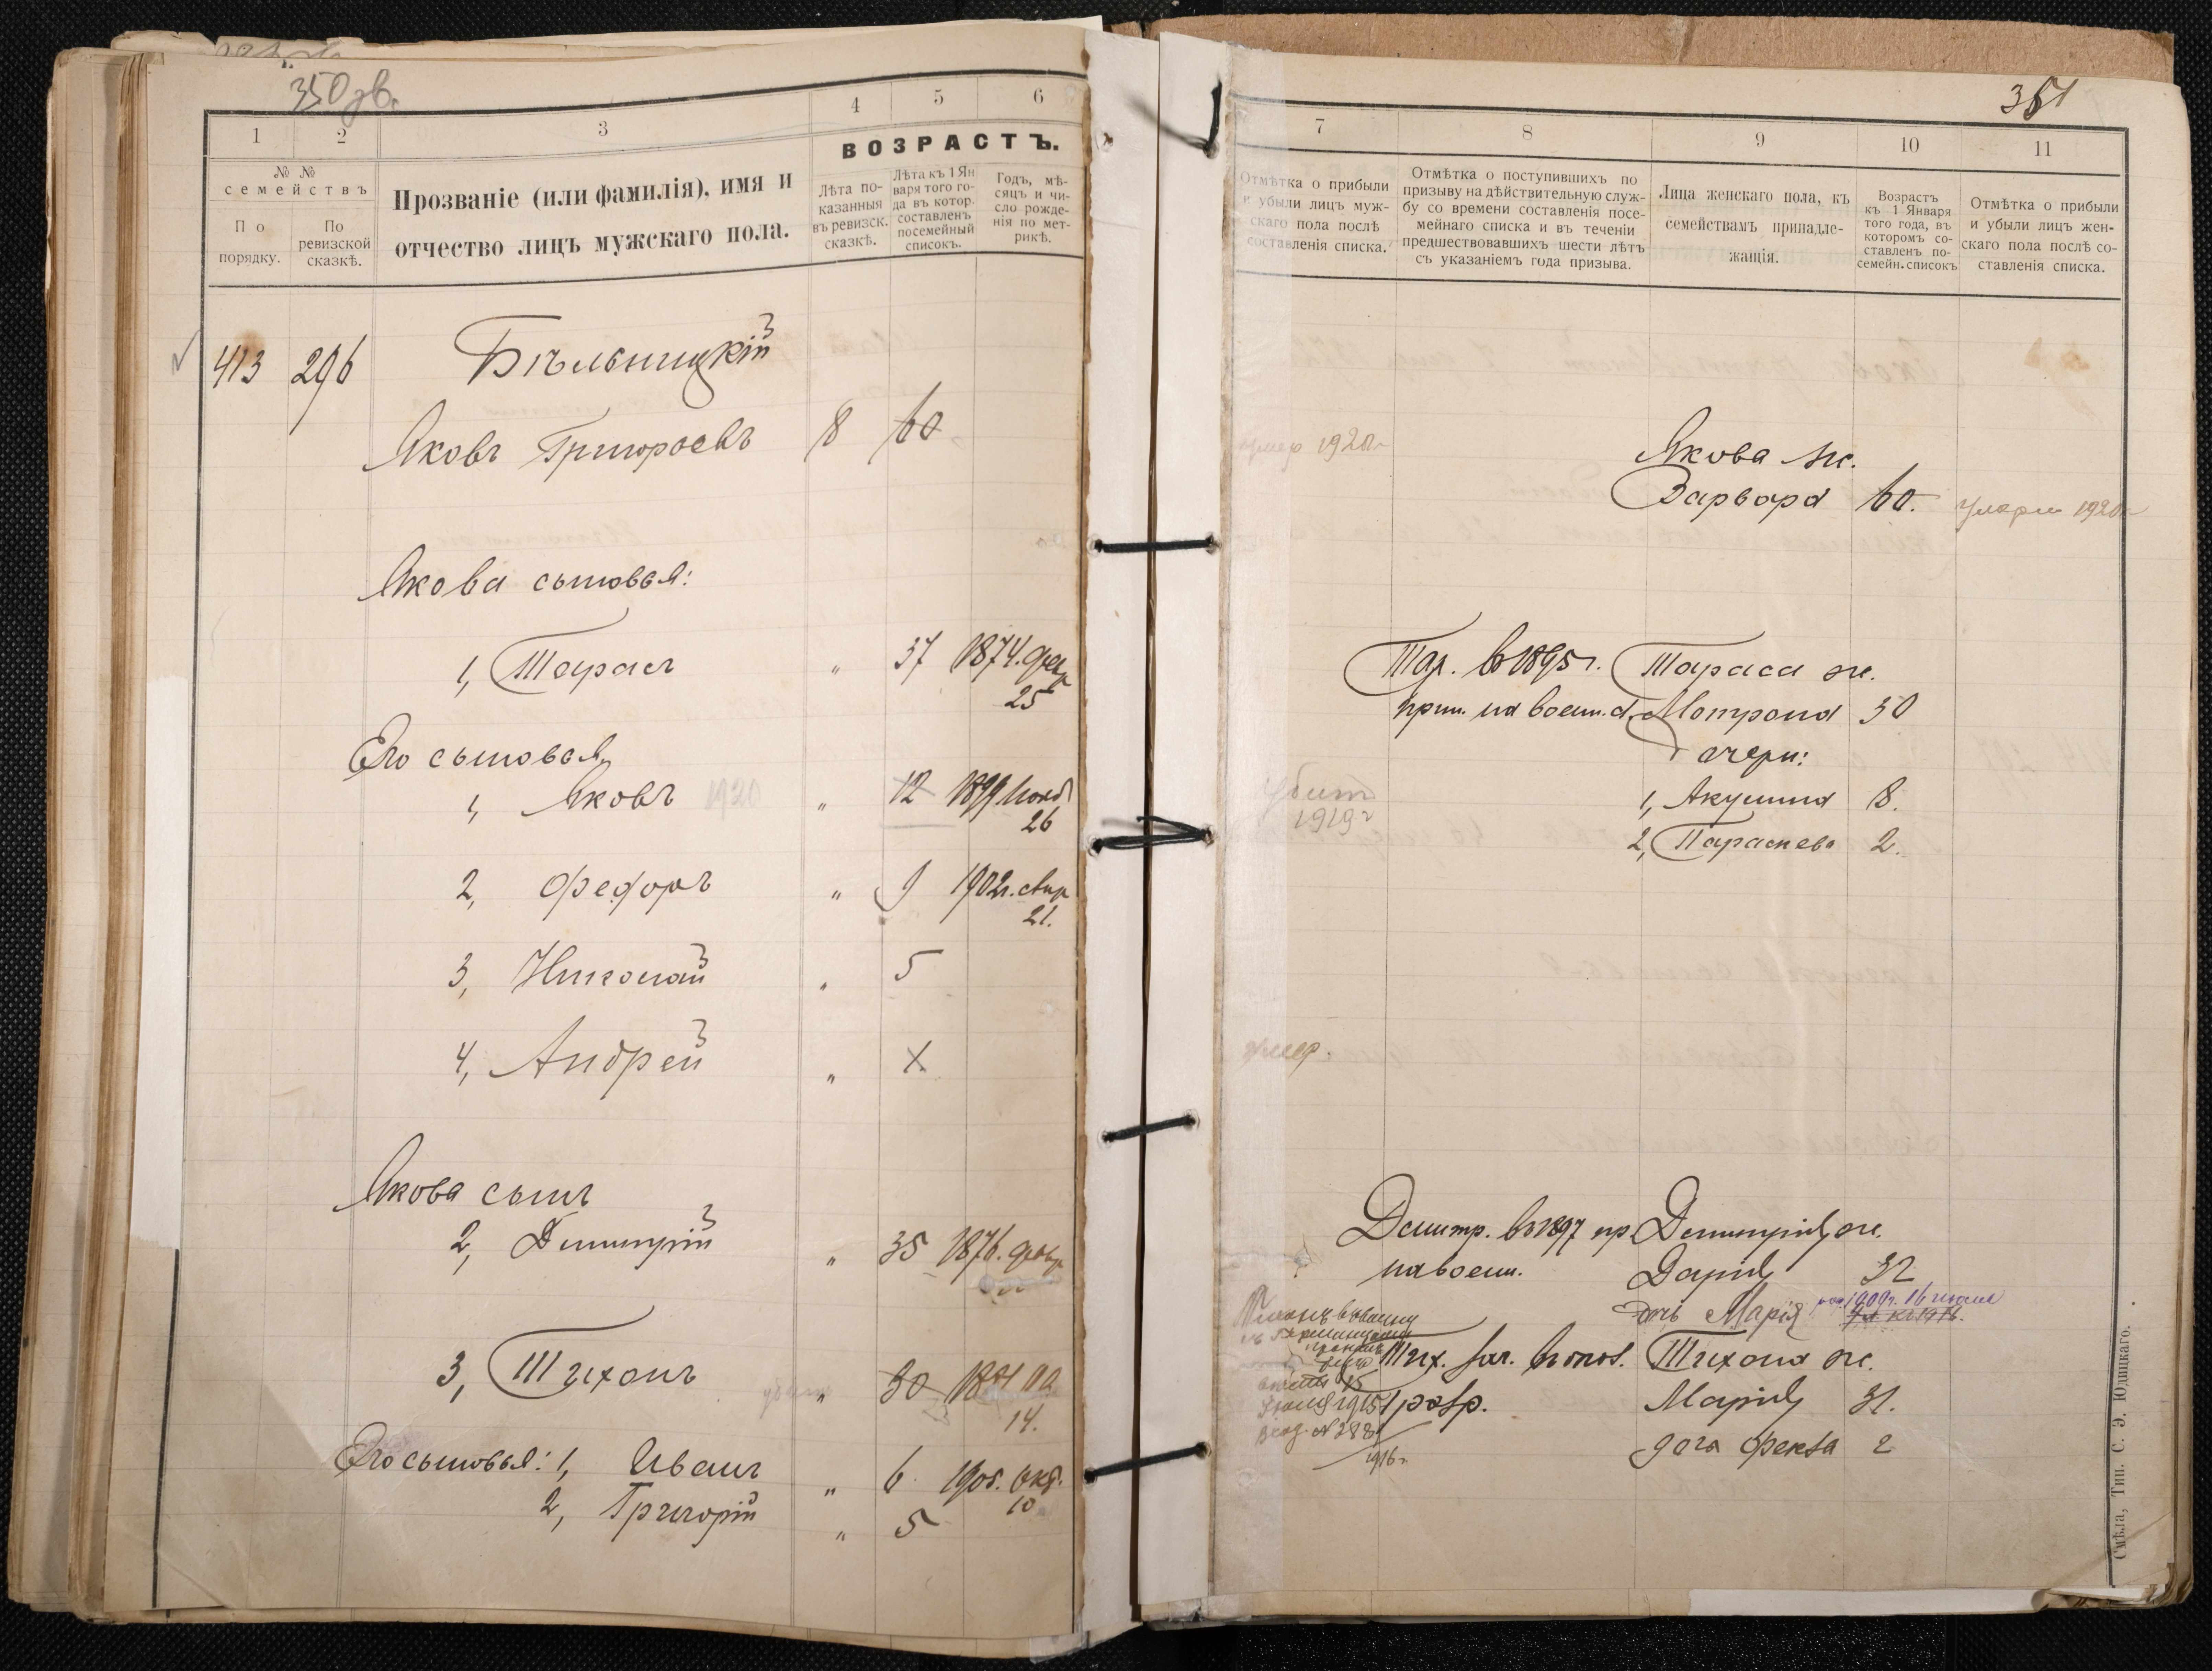 350 зв.
1
2
3
4
5
6
№ №
семействъ
По порядку.
По ревизской сказкѣ.
Прозваніе (или фамилія), имя и
отчество лицъ мужскаго пола.
ВОЗРАСТЪ.
Лѣта по-
казанныя
въ ревизск.
сказкѣ.
Лѣта къ 1 Ян
варя того го-
да въ котор.
составленъ
посемейный
списокъ.
Годъ, мѣ-
сяцъ и чи-
сло рожде-
нія по мет-
рикѣ.
413 296 Бѣльницкій
Яковъ Григорьевъ 8 60
Якова сыновья:
1, Тарасъ " 37 1874. фев
25
Его сыновья
1, Яковъ 1920 " 12 1899 Нояб
26
2, Федоръ " 9 1902г.
21.
3, Николай " 5
4, Андрей " X
Якова сынъ
2, Димитрій " 35 1876. февр
3, Тихонъ " 30 1881
14.
Его сыновья: 1, Иванъ " 6 1905. Окт.
10
2, Григорій " 5
351
7
8
9
10
11
Отмѣтка о прибыли
и убыли лицъ муж-
скаго пола послѣ
составленія списка.
Отмѣтка о поступившихъ по
призыву на дѣйствительную служ-
бу со времени составленія посе-
мейнаго списка и въ теченіи
предшествовавшихъ шести лѣтъ
съ указаніемъ года призыва.
Лица женскаго пола, къ
семействамъ принадле-
жащія.
Возрастъ
къ 1 Января
того года, въ
которомъ со-
ставленъ по-
семейн. списокъ
Отмѣтка о прибыли
и убыли лицъ жен-
скаго пола послѣ со-
ставленія списка.
умер 1920г
Якова ж.
Варвара 60. умерла 1920г
Тар. въ 1895г. Тараса ж.
прин. на воен. с. Мотрона 30
дочери:
Убит 1, Акулина 8.
1919г
2, Параскева 2.
умер.
Димитр. въ 1897 пр Димитрія ж.
на воен. Дарія 32
дочь Марія род. 1909г. 16 июля
Тих. зач. въ опол. Тихона ж.
1 разр. Марія 31.
дочь Фекла 2
1915
№ 288
1916г
Смѣла, Тип. С. Э. Юдицкаго.